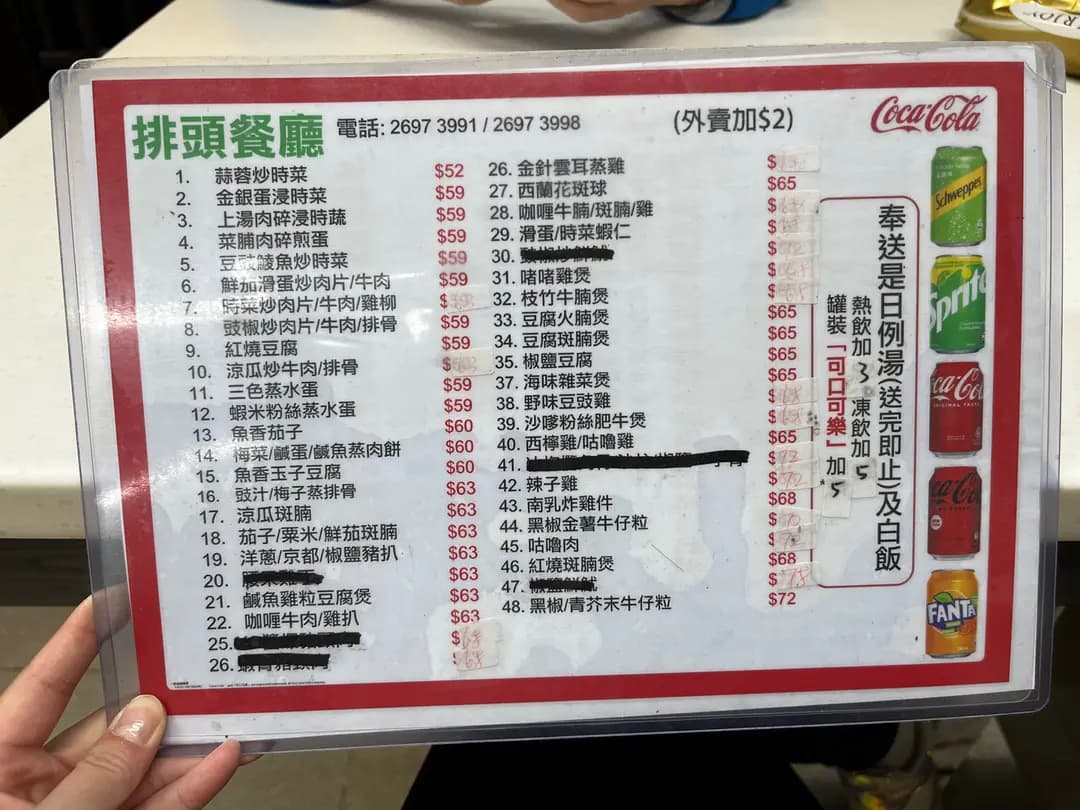 排頭餐廳 電話: 2697 3991 / 2697 3998 (外賣加$2)
Coca-Cola
1. 蒜蓉炒時菜 $52
2. 金銀蛋浸時菜 $59
3. 上湯肉碎浸時蔬 $59
4. 菜脯肉碎煎蛋 $59
5. 豆豉鯪魚炒時菜 $59
6. 鮮茄滑蛋炒肉片/牛肉 $59
7. 時菜炒肉片/牛肉/雞柳 $
8. 豉椒炒肉片/牛肉/排骨 $59
9. 紅燒豆腐 $59
10. 涼瓜炒牛肉/排骨 $
11. 三色蒸水蛋 $59
12. 蝦米粉絲蒸水蛋 $59
13. 魚香茄子 $60
14. 梅菜/鹹蛋/鹹魚蒸肉餅 $60
15. 魚香玉子豆腐 $60
16. 豉汁/梅子蒸排骨 $63
17. 涼瓜斑腩 $63
18. 茄子/粟米/鮮茄斑腩 $63
19. 洋蔥/京都/椒鹽豬扒 $63
20. $63
21. 鹹魚雞粒豆腐煲 $63
22. 咖喱牛肉/雞扒 $63
25. $68
26. $68
26. 金針雲耳蒸雞 $
27. 西蘭花斑球 $65
28. 咖喱牛腩/斑腩/雞 $
29. 滑蛋/時菜蝦仁 $
30. $
31. 啫啫雞煲 $
32. 枝竹牛腩煲 $
33. 豆腐火腩煲 $65
34. 豆腐斑腩煲 $65
35. 椒鹽豆腐 $65
37. 海味雜菜煲 $65
38. 野味豆豉雞 $
39. 沙嗲粉絲肥牛煲 $
40. 西檸雞/咕嚕雞 $65
41. $
42. 辣子雞 $
43. 南乳炸雞件 $68
44. 黑椒金薯牛仔粒 $
45. 咕嚕肉 $
46. 紅燒斑腩煲 $68
47. $
48. 黑椒/青芥末牛仔粒 $72
奉送是日例湯(送完即止)及白飯
熱飲加3 凍飲加5
罐裝「可口可樂」加5
Schweppes
Sprite
Coca-Cola
Coca-Cola
FANTA